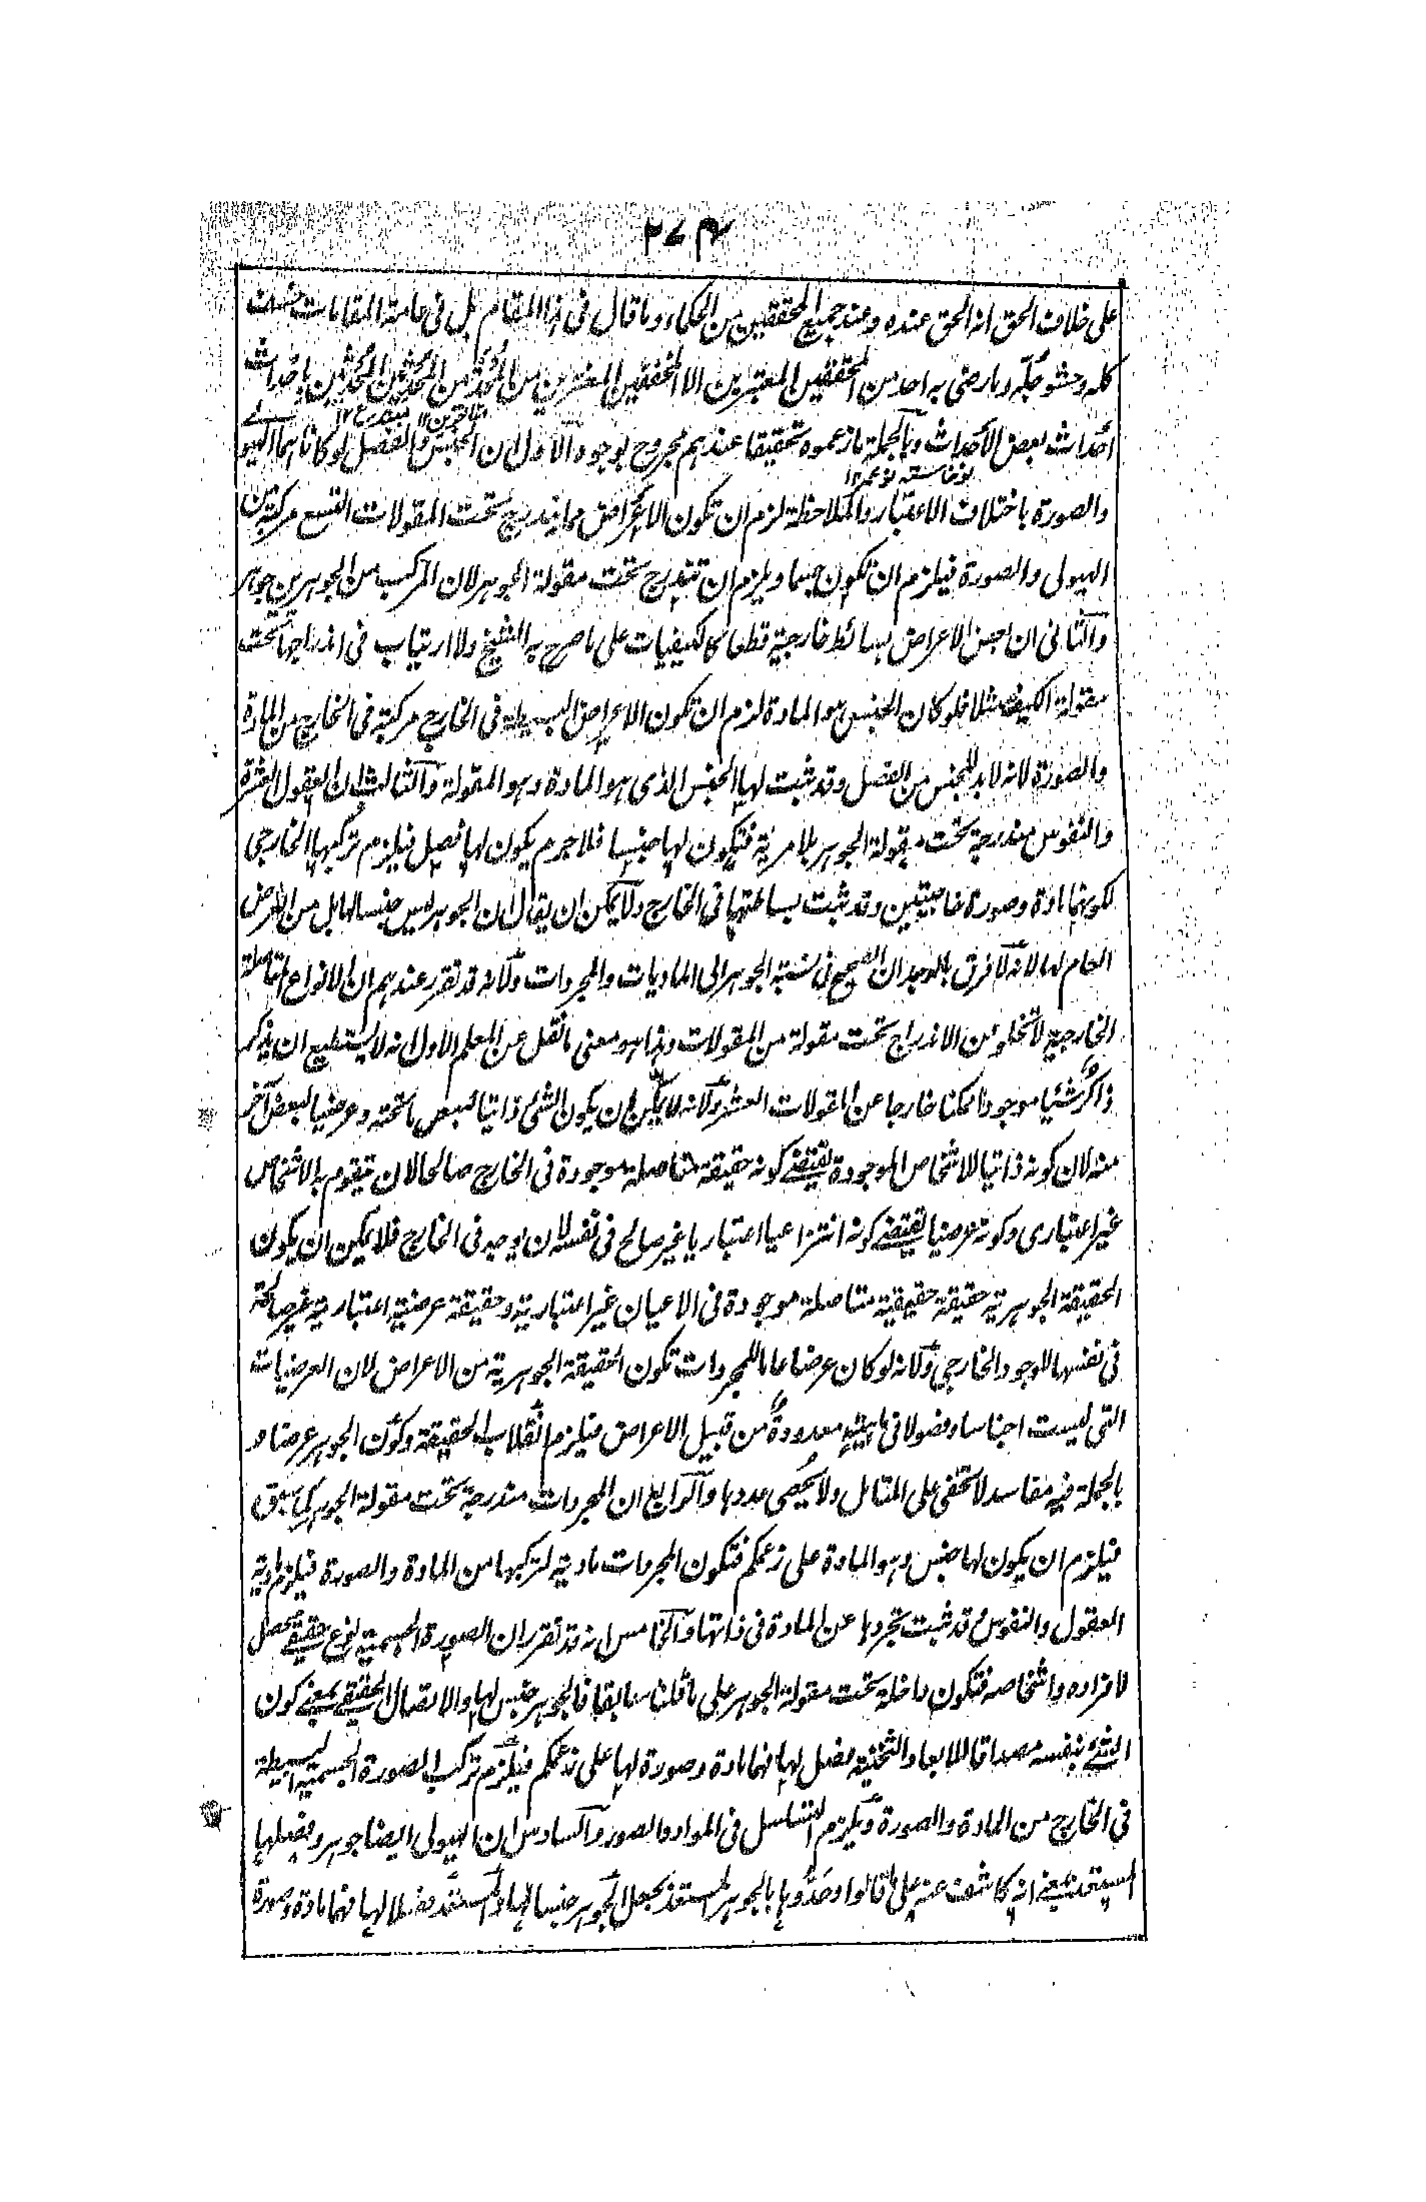 ٢٧٤
على خلاف الحق انه الحق عنده وعند جميع المحققين من الحكماء وما قال فى هذا المقام بل فى عامة المقامات
كله وحشو جله وما رضى به احد من المحققين المعتبرين الا المخفقين المغترين من المحدثين باحداث
متاخرين ١٢ مبتدع ١٢
أحداث بعض الأحداث وبالجملة ما زعموه تحقيقا عندهم مجروح بوجوه الاول ان الجنس والفصل لو كانا هما الهيولى
نوخاسته نوعمر ١٢
والصورة باختلاف الاعتبار والملاحظة لزم ان تكون الاعراض مما يندرج تحت المقولات التسع مركبة من
الهيولى والصورة فيلزم ان تكون جسما ويلزم ان تندرج تحت مقولة الجوهر لان المركب من الجوهرين جوهر
والثانى ان بعض الاعراض بسائط خارجية قطعا كالكيفيات على ما صرح به الشيخ ولا ارتياب فى اندراجها تحت
مقولة الكيف مثلا فلو كان الجنس هو المادة لزم ان تكون الاعراض البسيطة فى الخارج مركبة فى الخارج من المادة
والصورة لانه لا بد للجنس من الفصل وقد ثبت لها الجنس الذى هو المادة وهو المقولة والثالث ان العقول العشرة
والنفوس مندرجة تحت مقولة الجوهر بلا مرية فتكون لها جنسا فلا جرم يكون لها فصل فيلزم تركبها الخارجى
لكونهما مادة وصورة خارجيتين وقد ثبت بساطتها فى الخارج ولا يمكن ان يقال ان الجوهر ليس جنسا لها بل من العرض
العام لها لانه لا فرق بالوجدان الصحيح فى نسبة الجوهر الى الماديات والمجردات ولانه قد تقرر عندهم ان الانواع المتاصلة
الخارجية لا تخلو عن الاندراج تحت مقولة من المقولات وهذا هو معنى ما نقل عن المعلم الاول انه لا يستطيع ان يذكر
ذاكر شيئا موجودا ممكنا خارجا عن المقولات العشر ولانه لا يمكن ان يكون الشئ ذاتيا لبعض ما تحته وعرضيا لبعض آخر
منه لان كونه ذاتيا للاشخاص الموجودة يقتضى كونه حقيقة متاصلة موجودة فى الخارج صالحا لان يتقوم به الاشخاص
غير اعتبارى وكونه عرضيا يقتضى كونه انتزاعيا اعتباريا غير صالح فى نفسه لان يوجد فى الخارج فلا يمكن ان يكون
الحقيقة الجوهرية حقيقة حقيقية متاصلة موجودة فى الاعيان غير اعتبارية وحقيقة عرضية اعتبارية غير صالحة
فى نفسها للوجود الخارجى ولانه لو كان عرضا عاما للمجردات تكون الحقيقة الجوهرية من الاعراض لان العرضيات
التى ليست اجناسا وفصولا فى ماهية معدودة من قبيل الاعراض فيلزم انقلاب الحقيقة وكون الجوهر عرضا و
بالجملة فيه مفاسد لا تخفى على المتأمل ولا يحصى عددها والرابع ان المجردات مندرجة تحت مقولة الجوهر كما سبق
فيلزم ان يكون لها جنس وهو المادة على زعمكم فتكون المجردات مادية لتركبها من المادة والصورة فيلزم مادية
العقول والنفوس وقد ثبت تجردها عن المادة فى ذاتها والخامس انه قد تقرر ان الصورة الجسمية نوع حقيقى محصل
لافراده واشخاصه فتكون داخلة تحت مقولة الجوهر على ما قلنا سابقا فالجوهر جنس لها والاتصال الحقيقى بمعنى كون
الشئ بنفسه مصداقا للابعاد الثخينة فصل لها فهما مادة وصورة لها على زعمكم فيلزم تركب الصورة الجسمية البسيطة
فى الخارج من المادة والصورة ويلزم التسلسل فى المواد والصور والسادس ان الهيولى ايضا جوهر وفصلها
المستعد بمعنى انه كاشف عنه على ما قالوا وحدوها بالجوهر المستعد بجعل الجوهر جنسا لها والمستعد فصلا لها فهما مادة وصورة